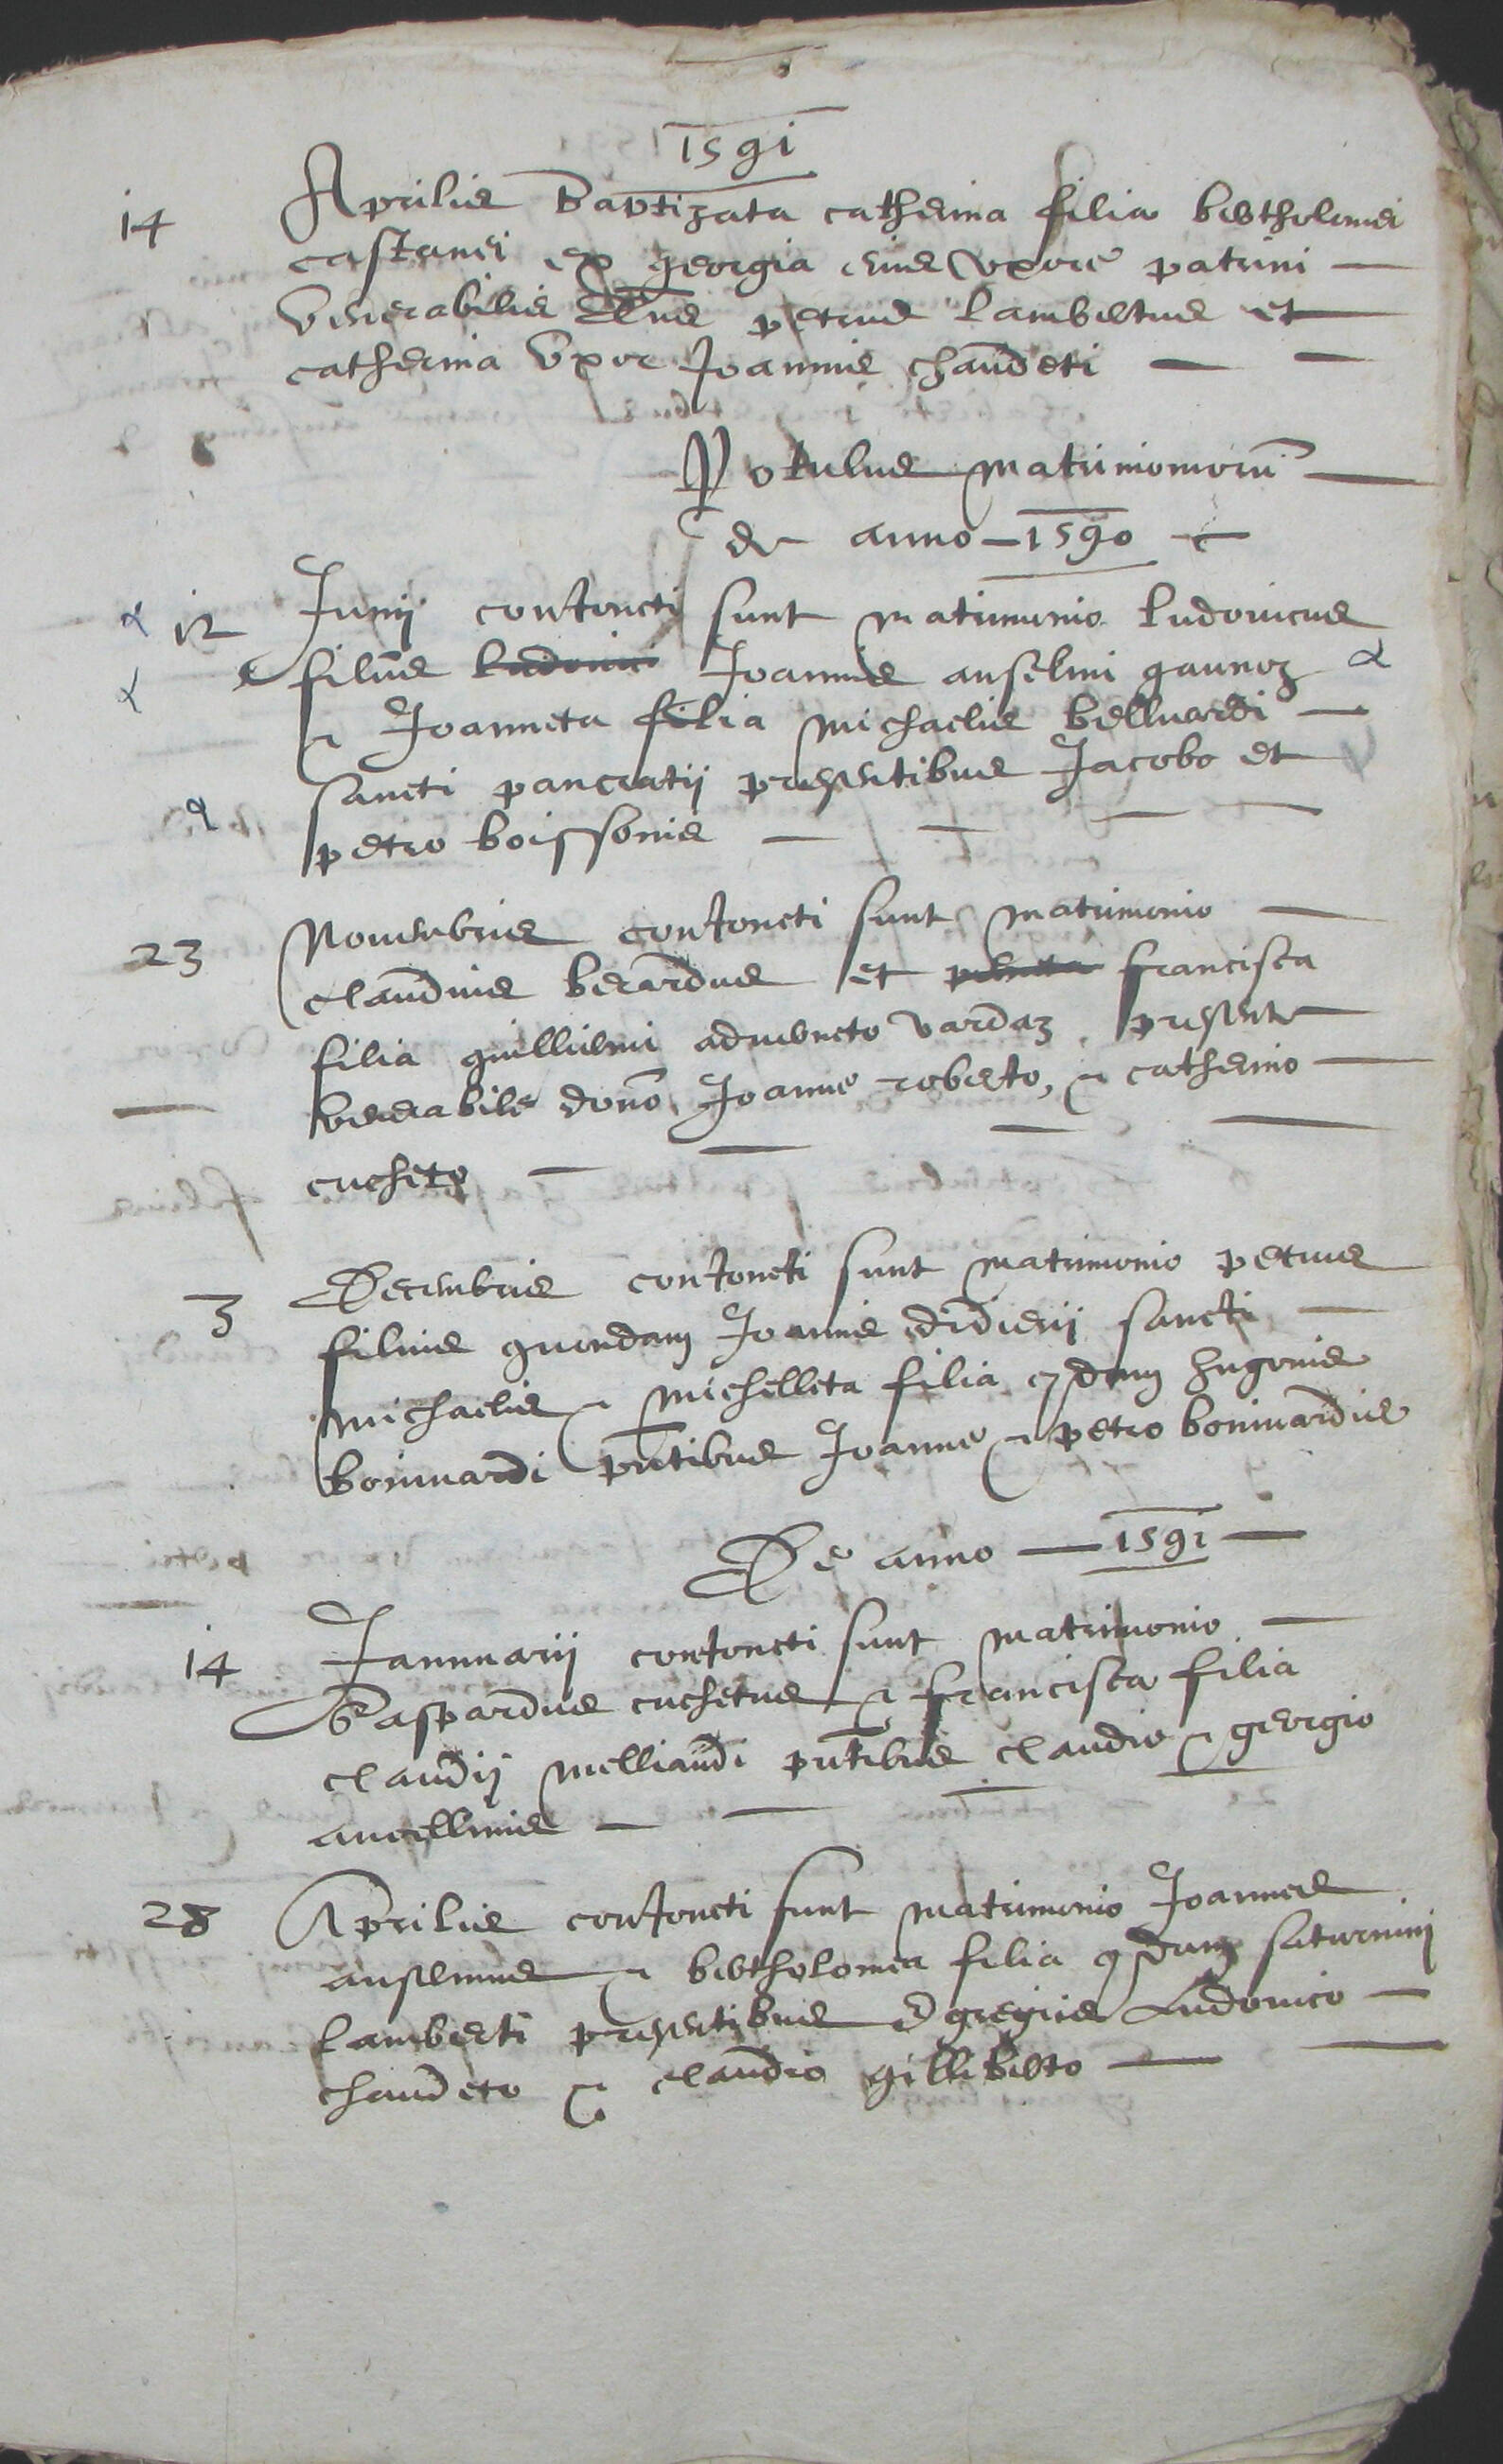 1591
14 Aprilis Baptizata catherina filia bertholomei
castanei ex georgia eius uxore patrini
Venerabilis Dns petrus lambertus et
catherina uxor Joannis chaudeti
Rotulus matrimoniorū
de anno 1590
12 Junij conjoncti sunt matrimonio ludovicus
filius ludovici Joannis anselmi gaunoz
& Joanneta filia michaelis belluardi
sancti pancratij presentibus Jacobo et
petro boissonis
23 Novembris conjoncti sunt matrimonio
claudius berardus et francisca
filia guillielmi vardaz presente
venerabile domo Joanne roberto, & catherino
cucheto
3 Decembris conjoncti sunt matrimonio petrus
filius quondam Joannis didierij sancti
michaelis & michelleta filia qdam hugonis
bonivardi pntibus Joanne & petro bonivardis
De anno 1591
14 Januarij conjoncti sunt matrimonio
Gaspardus cuchetus & francisca filia
claudij melliandi pntibus claudio & georgio
ancellinis
28 Aprilis conjoncti sunt matrimonio Joannes
anselmus & bertholomea filia qdam saturnini
lamberti presentibus Egregiis Ludovico
chaudeto & claudio gilliberto